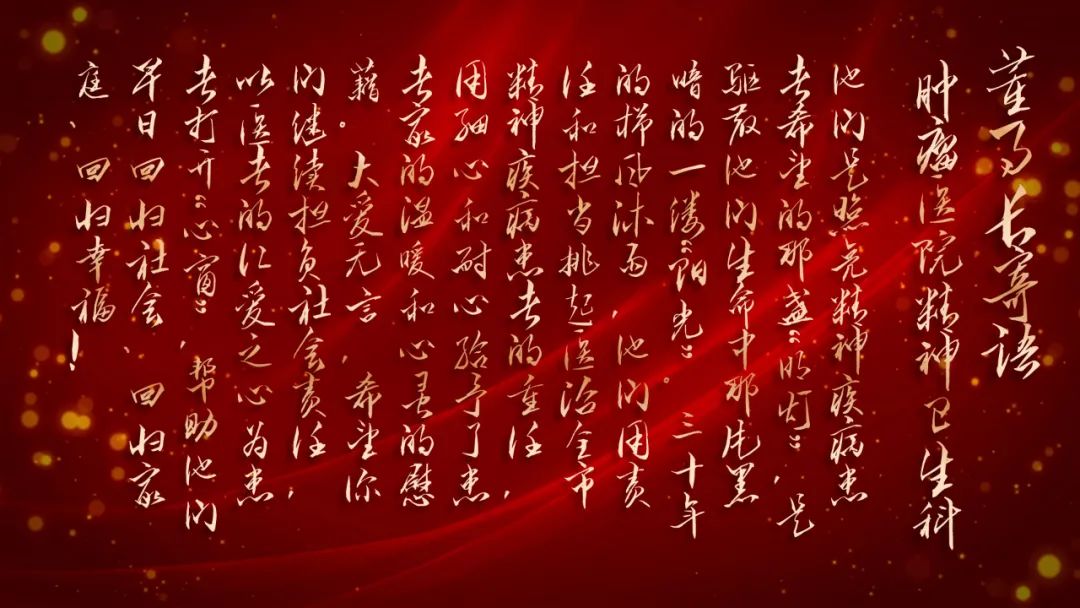 董事长寄语
肿瘤医院精神卫生科
他们是照亮精神疾病患
者希望的那盏“明灯”，是
驱散他们生命中那片黑
暗的一缕“阳光”。三十年
的栉风沐雨，他们用责
任和担当挑起医治全市
精神疾病患者的重任，
用细心和耐心给予了患
者家的温暖和心灵的慰
藉。大爱无言，希望你
们继续担负社会责任，
以医者的仁爱之心为患
者打开“心窗”，帮助他们
早日回归社会、回归家
庭、回归幸福！